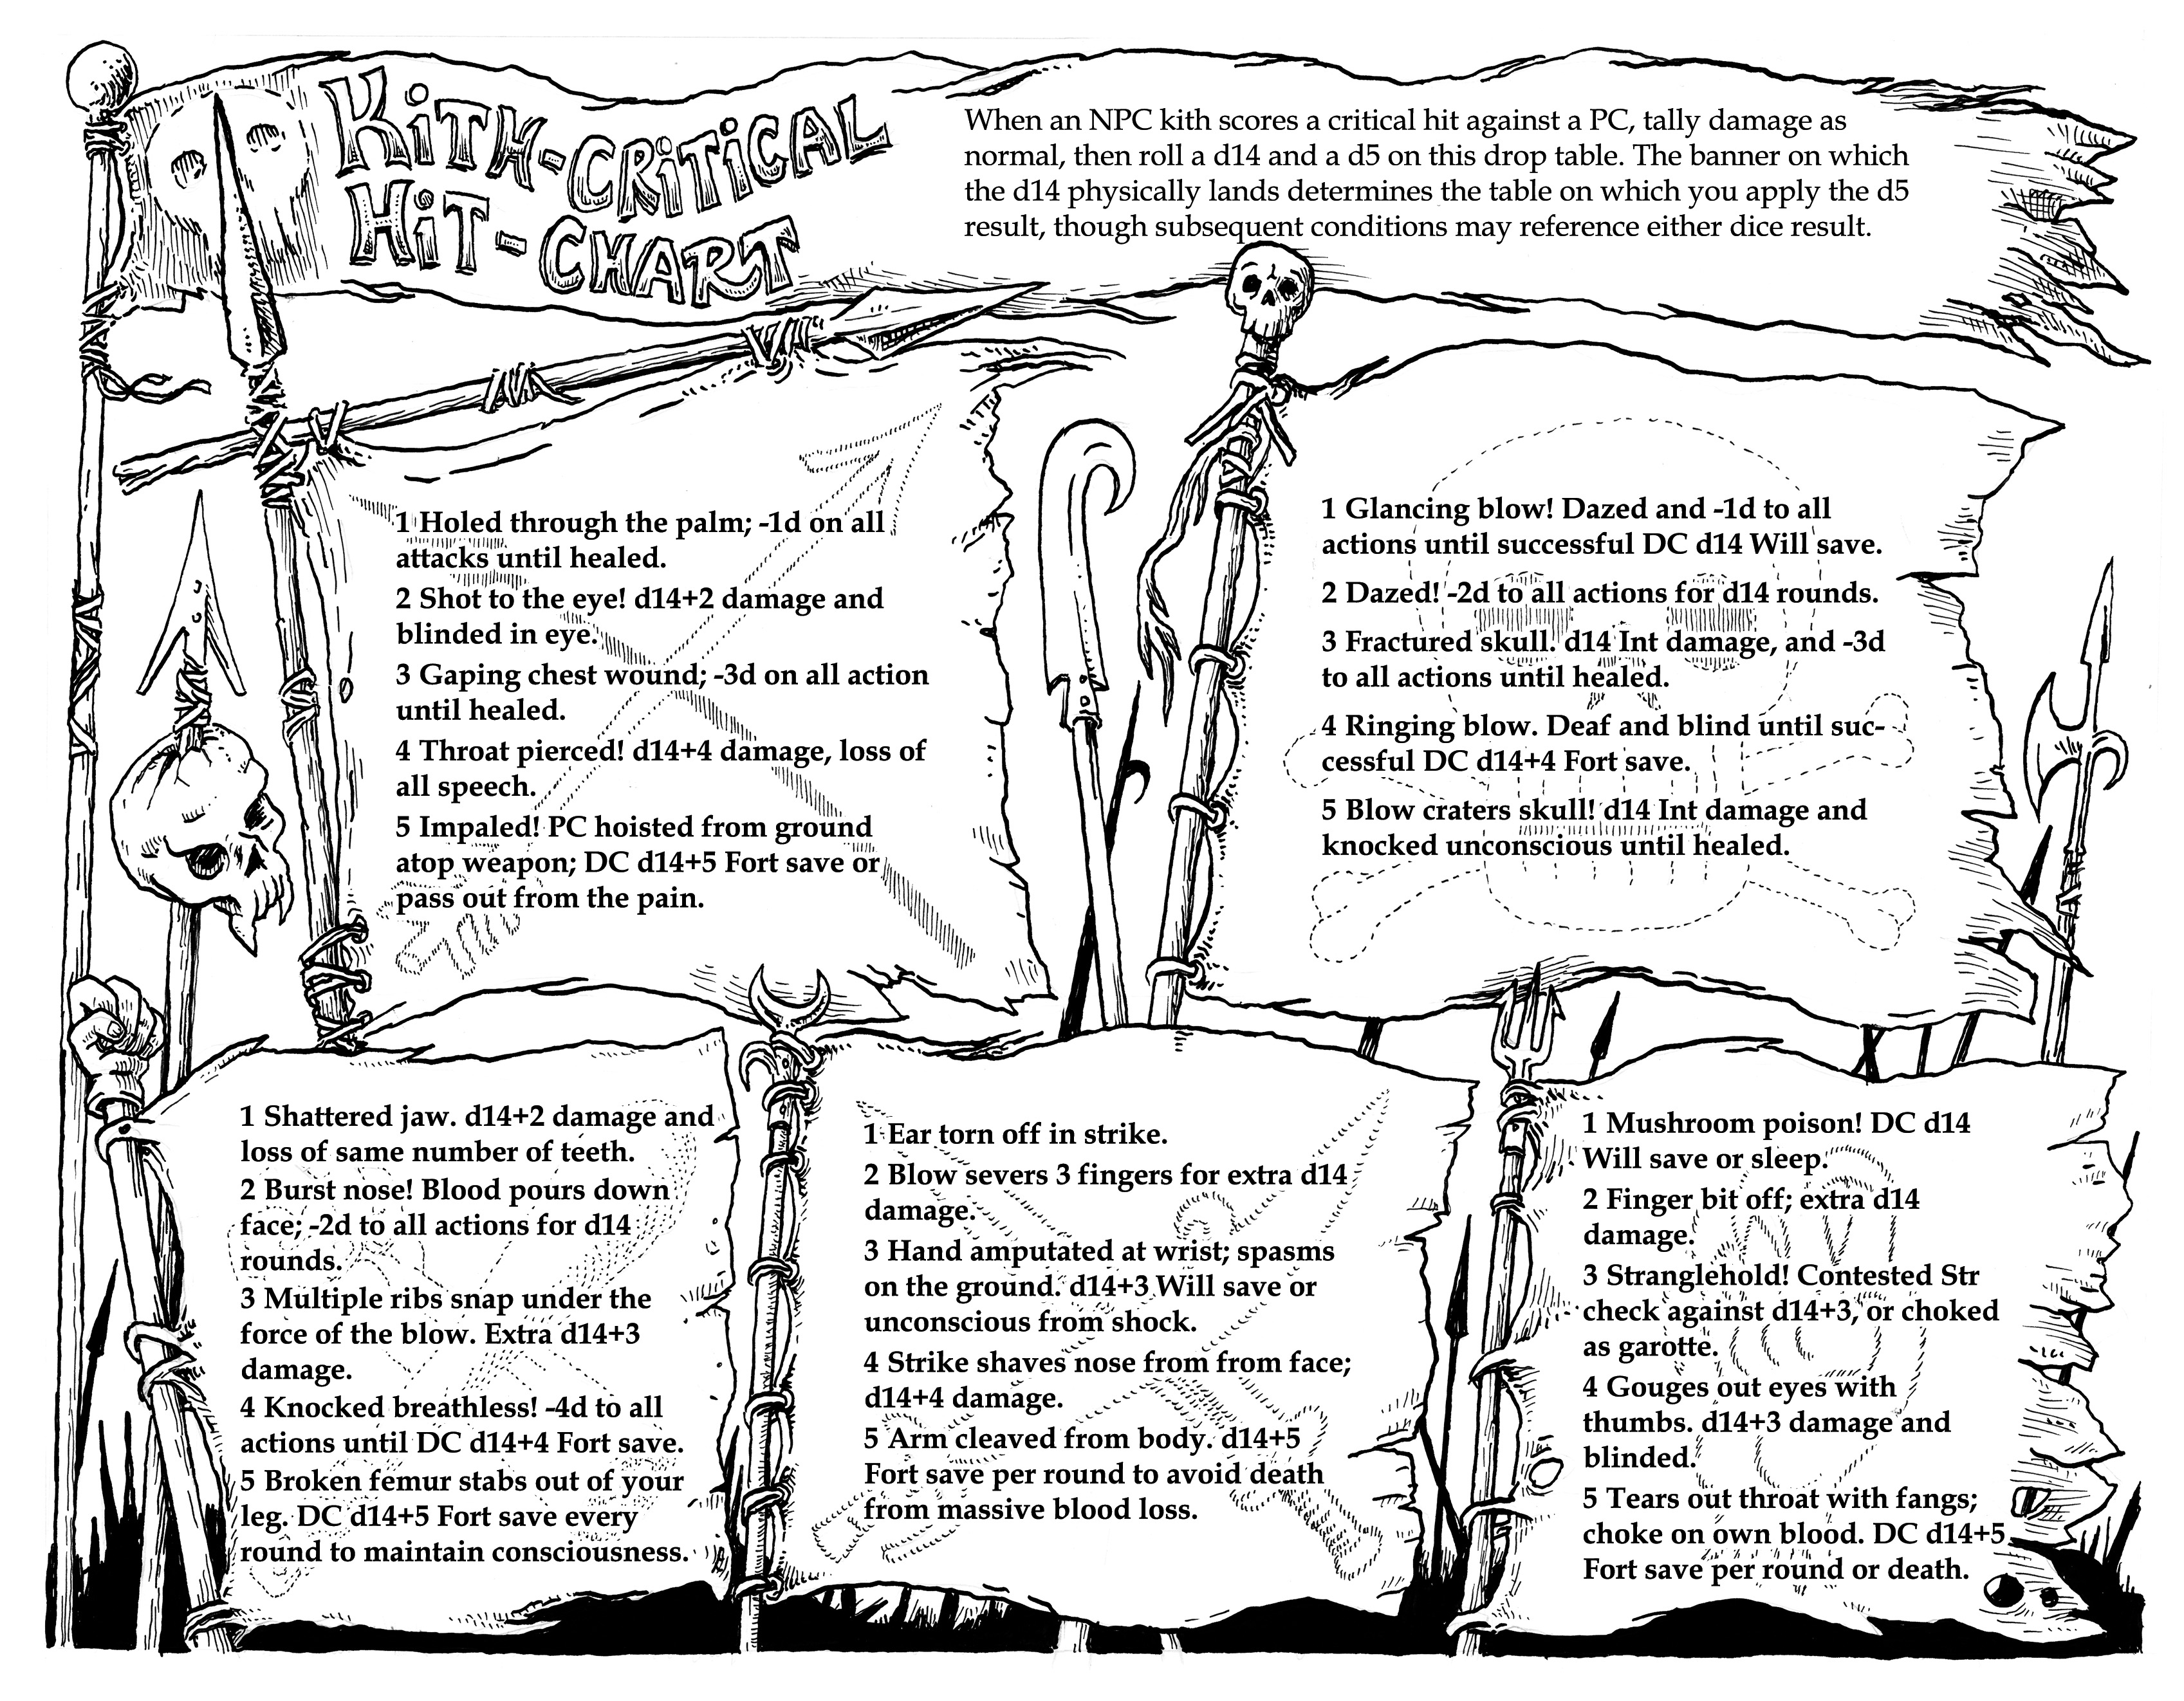 KiTH-CRiTiCAL
HiT-CHART
When an NPC kith scores a critical hit against a PC, tally damage as
normal, then roll a d14 and a d5 on this drop table. The banner on which
the d14 physically lands determines the table on which you apply the d5
result, though subsequent conditions may reference either dice result.
1 Holed through the palm; -1d on all
attacks until healed.
2 Shot to the eye! d14+2 damage and
blinded in eye.
3 Gaping chest wound; -3d on all action
until healed.
4 Throat pierced! d14+4 damage, loss of
all speech.
5 Impaled! PC hoisted from ground
atop weapon; DC d14+5 Fort save or
pass out from the pain.
1 Glancing blow! Dazed and -1d to all
actions until successful DC d14 Will save.
2 Dazed! -2d to all actions for d14 rounds.
3 Fractured skull. d14 Int damage, and -3d
to all actions until healed.
4 Ringing blow. Deaf and blind until suc-
cessful DC d14+4 Fort save.
5 Blow craters skull! d14 Int damage and
knocked unconscious until healed.
1 Shattered jaw. d14+2 damage and
loss of same number of teeth.
2 Burst nose! Blood pours down
face; -2d to all actions for d14
rounds.
3 Multiple ribs snap under the
force of the blow. Extra d14+3
damage.
4 Knocked breathless! -4d to all
actions until DC d14+4 Fort save.
5 Broken femur stabs out of your
leg. DC d14+5 Fort save every
round to maintain consciousness.
1 Ear torn off in strike.
2 Blow severs 3 fingers for extra d14
damage.
3 Hand amputated at wrist; spasms
on the ground. d14+3 Will save or
unconscious from shock.
4 Strike shaves nose from from face;
d14+4 damage.
5 Arm cleaved from body. d14+5
Fort save per round to avoid death
from massive blood loss.
1 Mushroom poison! DC d14
Will save or sleep.
2 Finger bit off; extra d14
damage.
3 Stranglehold! Contested Str
check against d14+3, or choked
as garotte.
4 Gouges out eyes with
thumbs. d14+3 damage and
blinded.
5 Tears out throat with fangs;
choke on own blood. DC d14+5
Fort save per round or death.